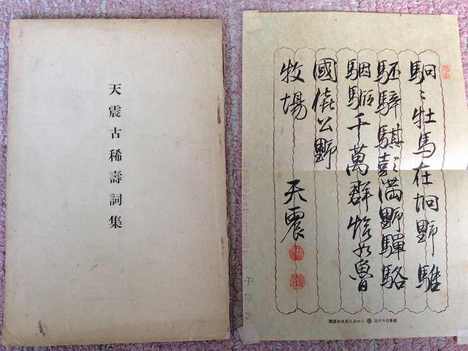 天震古稀壽詞集
駉〻牡馬在坰野騅
駓騂騏彭満野驒駱
駰騢千萬群恰如魯
國僖公野
牧場
天震